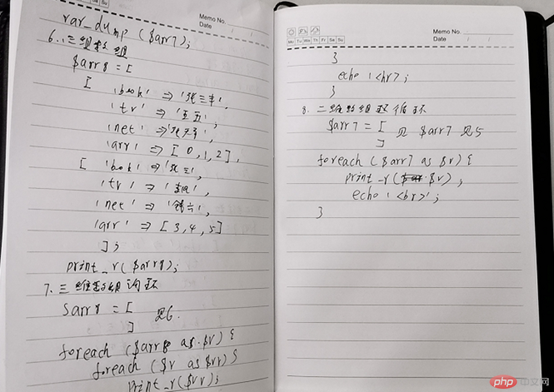 Memo No.
Date
var_dump ($arr7);
6. 三维数组
$arr8 = [
[
'book' => '张三丰',
'tv' => '王五',
'net' =>
'arr' => [0,1,2],
[ 'book' =>
'tv' =>
'net' =>
'arr' => [3,4,5]
];
print_r($arr8);
7. 三维数组循环
$arr8 = [
见6.
]
foreach ($arr8 as $v) {
foreach ($v as $vv) {
print_r($vv);
Memo No.
Date
Mo Tu We Th Fr Sa Su
}
echo '<br>';
}
8. 二维数组双循环
$arr7 = [ 见 $arr7 见5
]
foreach ($arr7 as $v) {
print_r( $v);
echo '<br>';
}
php